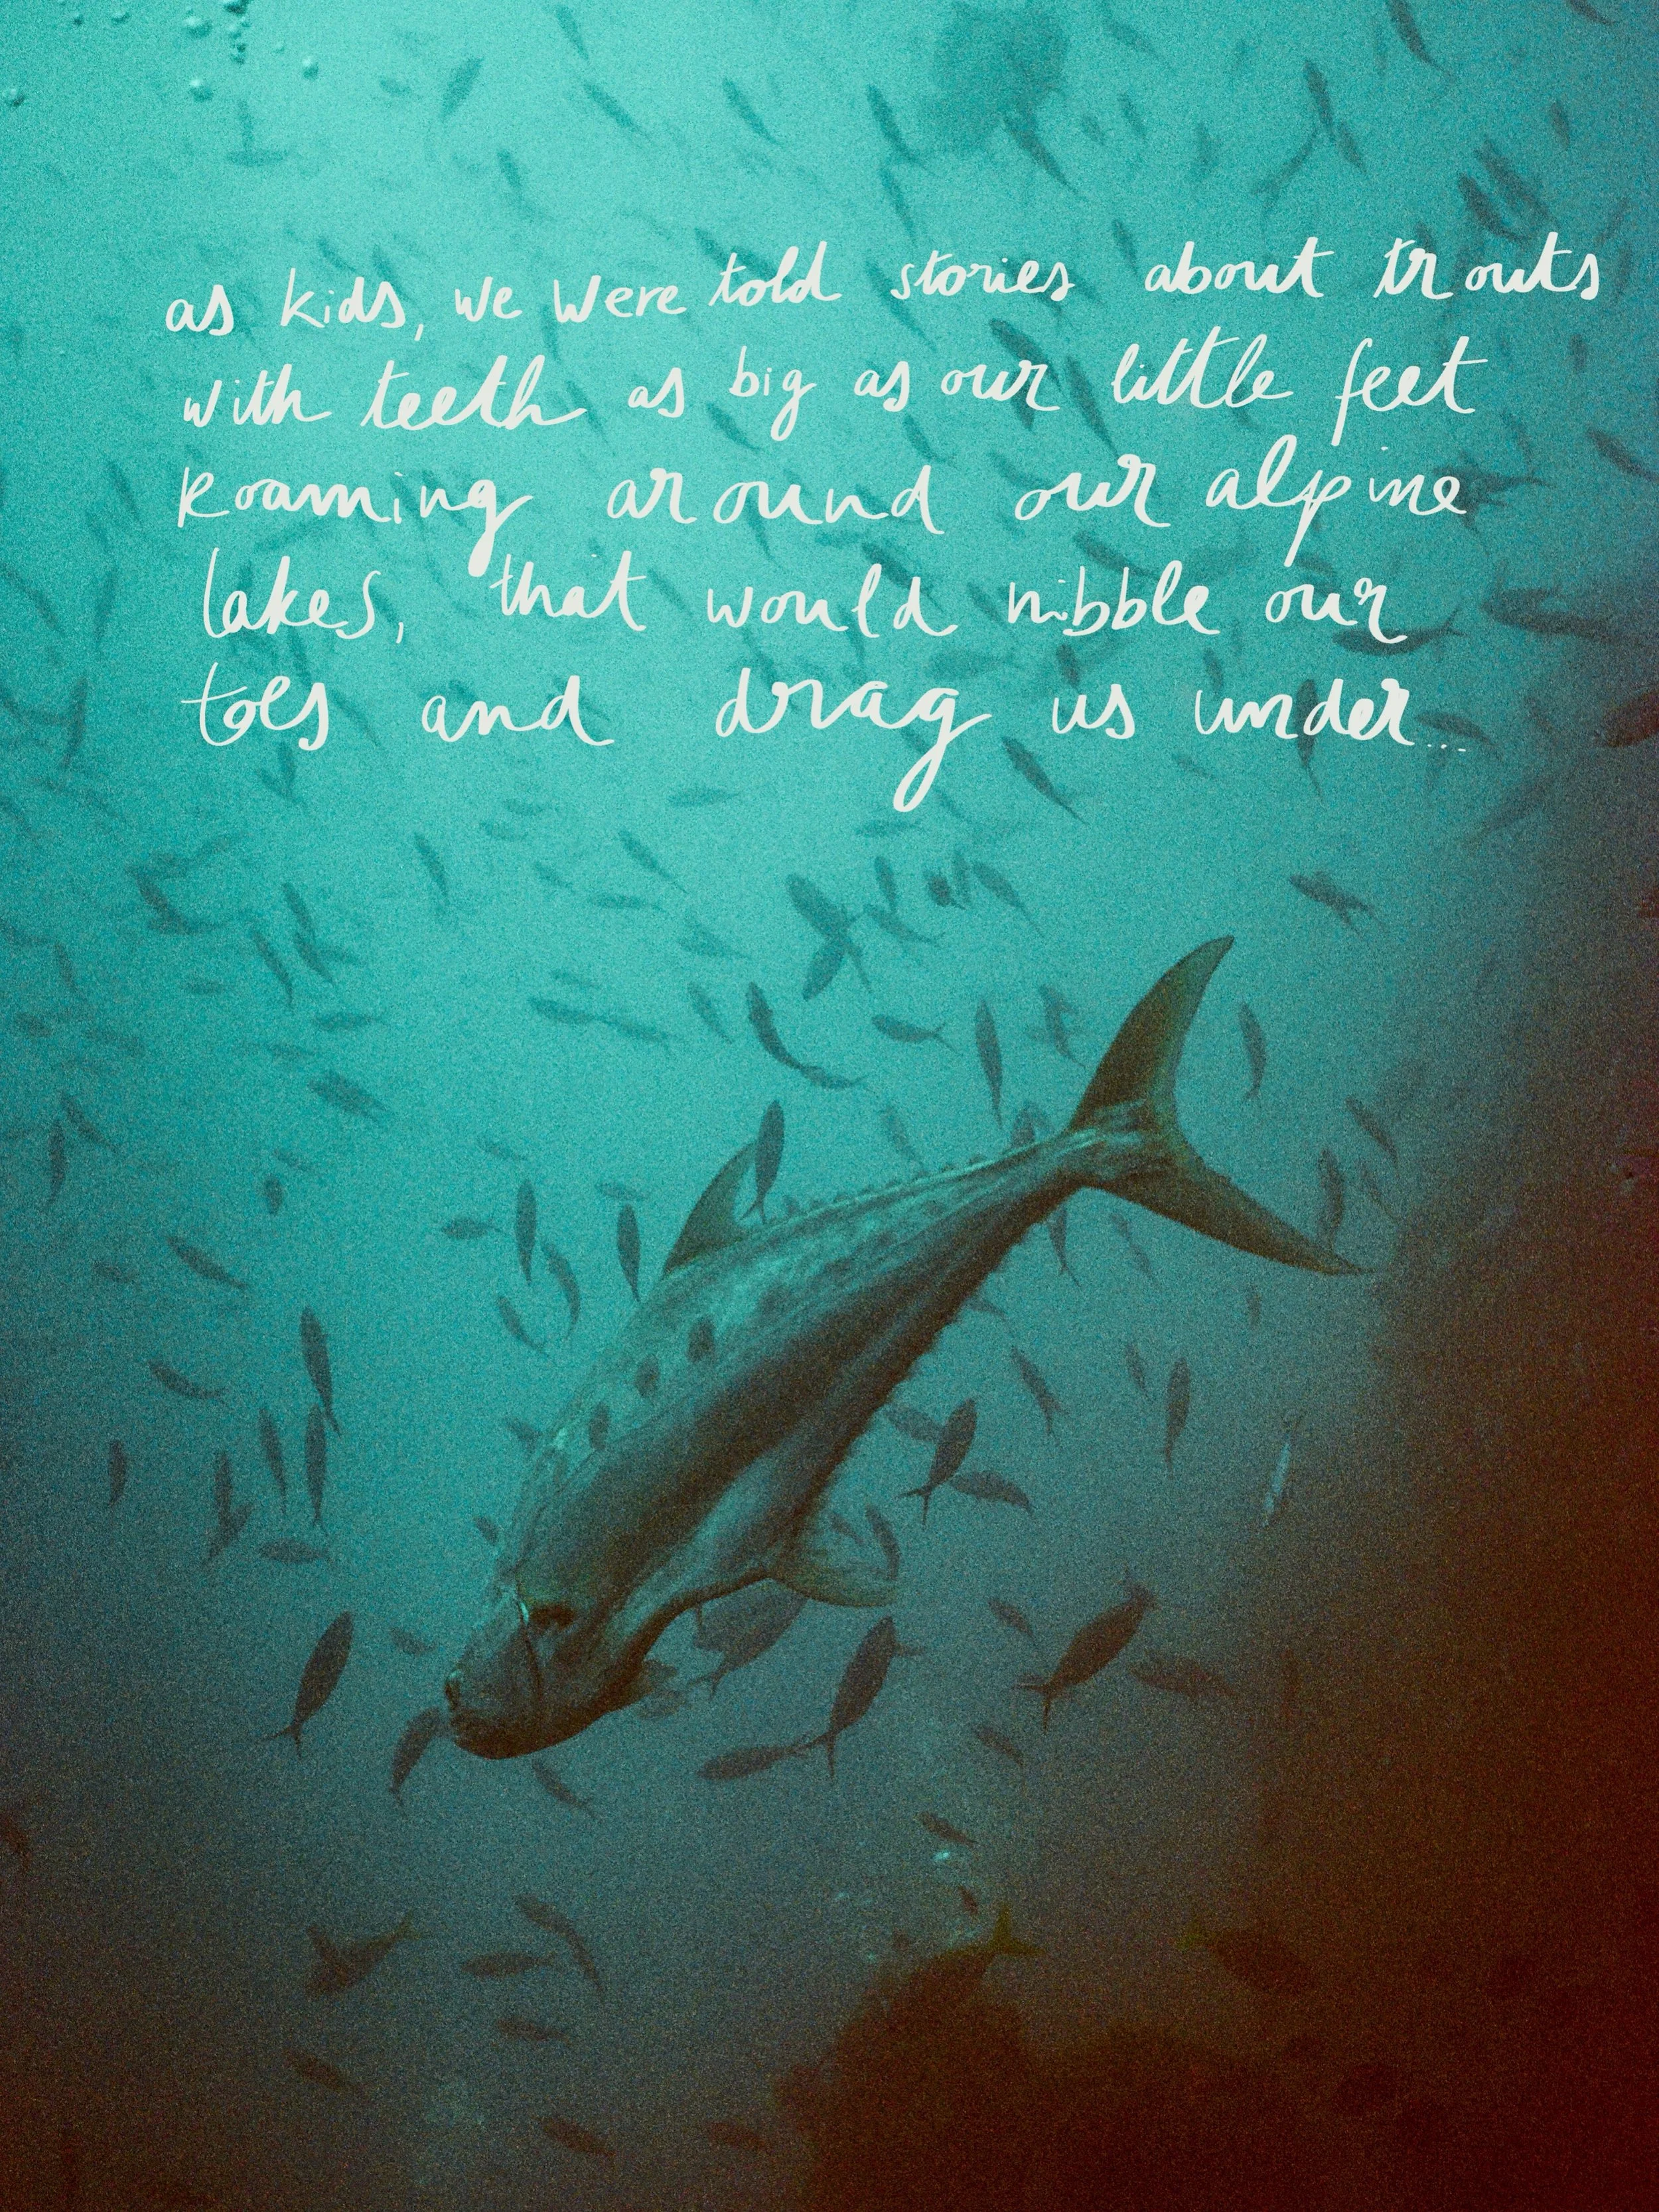 as kids, we were told stories about trouts
with teeth as big as our little feet
roaming around our alpine
lakes, that would nibble our
toes and drag us under...